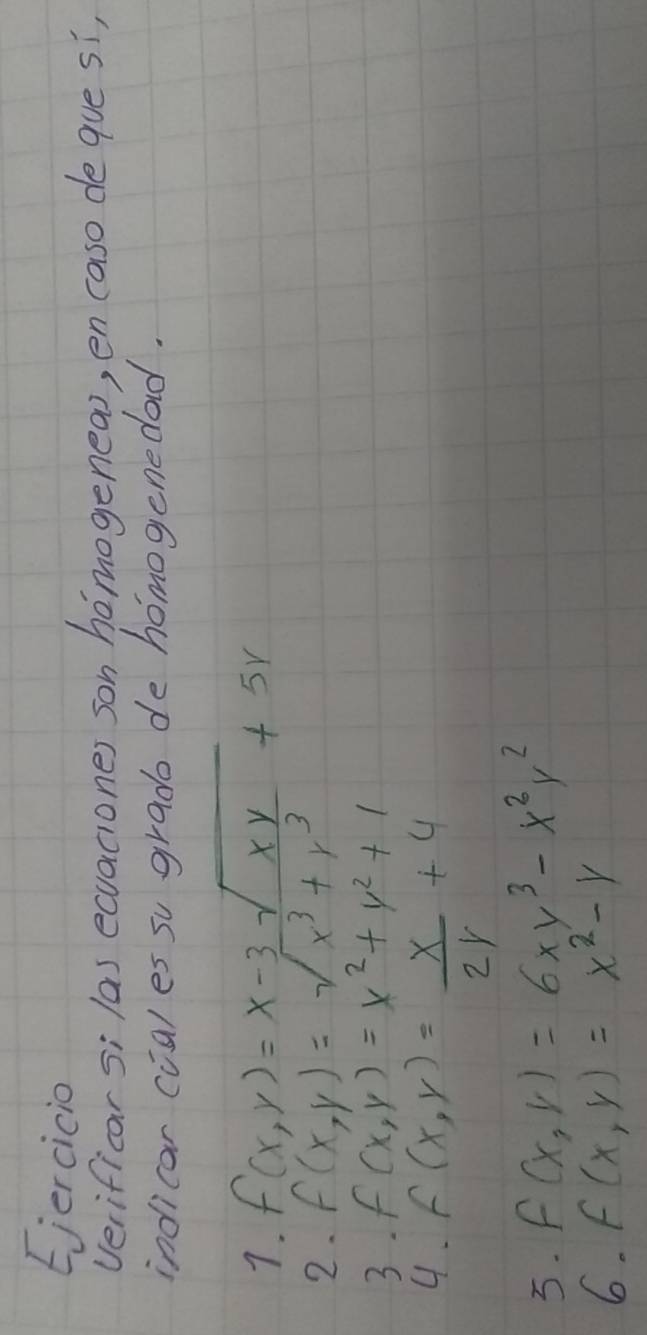 Ejercicio
Verificar si las ecuaciones son hómogeneas, en caso de que sí,
indicar cúal es su grado de hómogenedad.
1. f(x,y) = x - 3√xy + 5y
2. f(x,y) = √x³ + y³
3. f(x,y) = x² + y² + 1
4. f(x,y) = x/2y + 4
5. f(x,y) = 6xy³ - x²y²
6. f(x,y) = x² - y